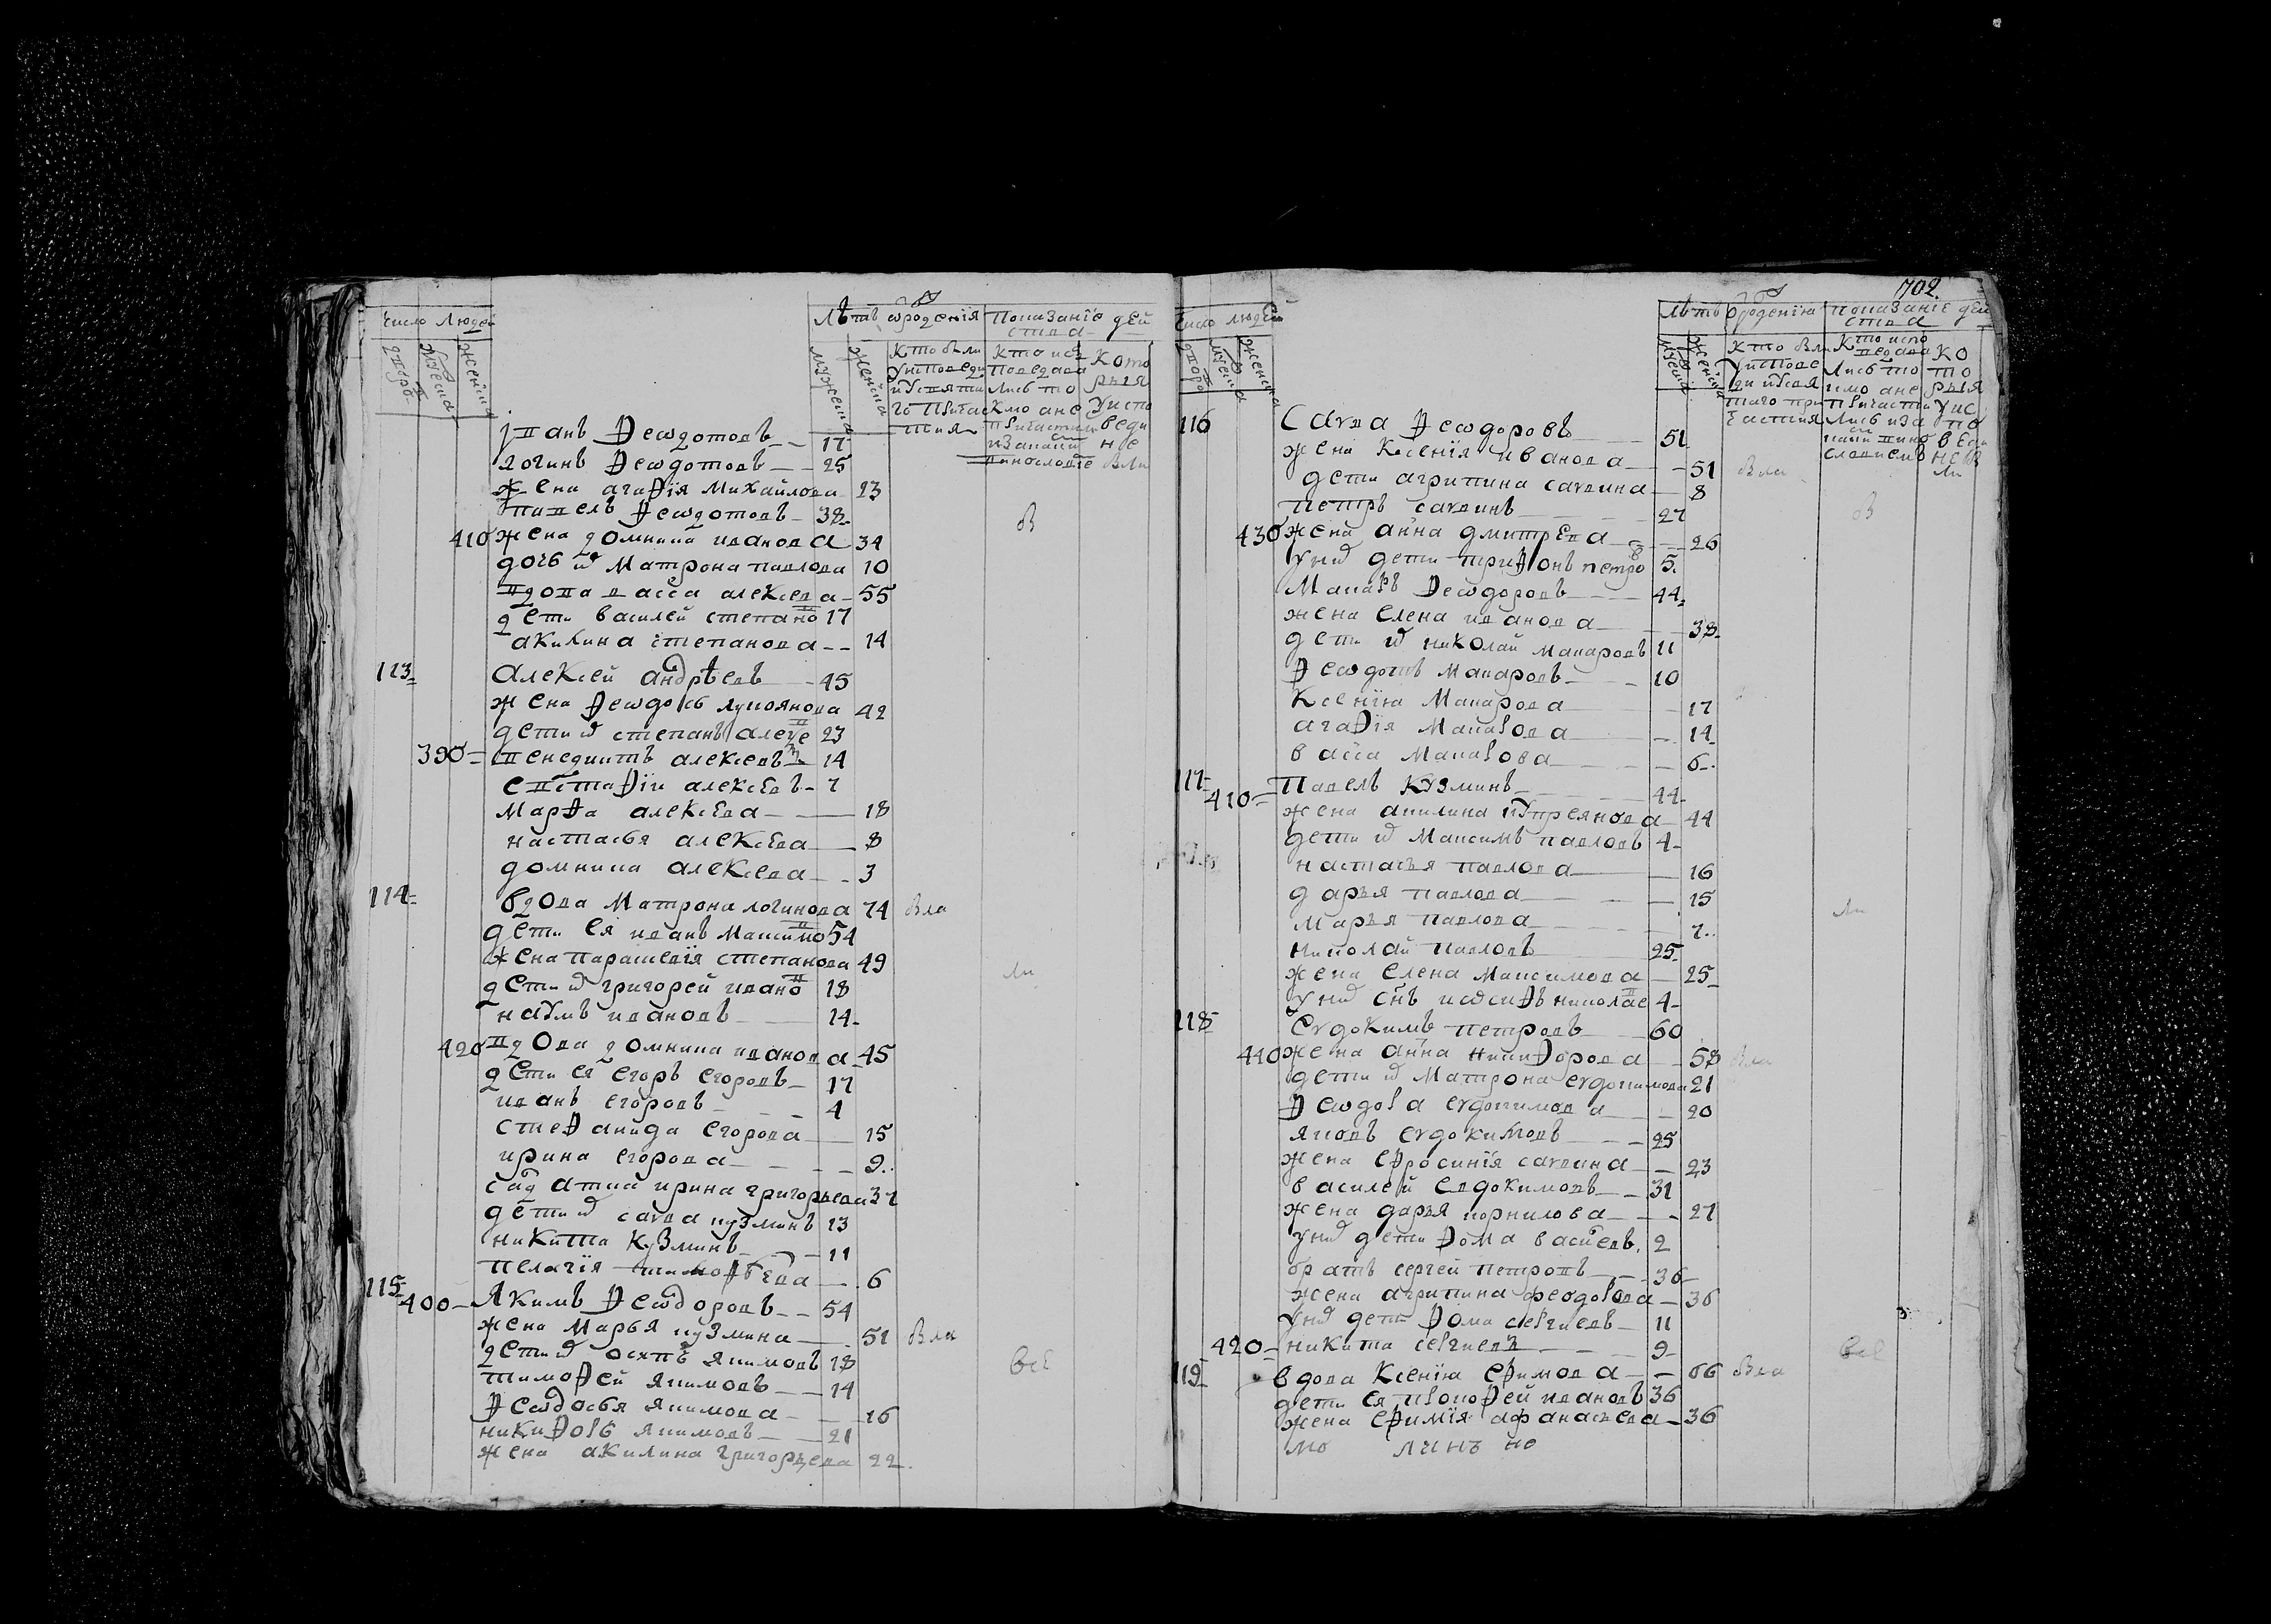 Число людей
лѣтъ ѿ рождения
Показанїе дей
ства
дворовъ
мужеска
женска
мужеска
женска
Кто были
у исповеди
и Святи
го Прича
стия
Кто ис
поведала
лись то
кмо а не
причастили
и За каким
винословие
Кото
рыя
у испо
веди
не
были
іванъ Феѡдотовъ 17
логинъ Феѡдотовъ 25
жена агафїя Михайлова 23
павелъ Феѡдотовъ 38
410 жена домника иванова 34
дочь иⷯ Матрона павлова 10
вдова васса алексева 55
дети василей степановъ 17
акилина степанова 14
113 Алексей андрѣевъ 45
жена Феѡдось лукоянова 42
дети иⷯ степанъ алексе 23
390 венедиктъ алексевъ 14
евстафїи алексѣевъ 7
марфа алексѣва 18
настасья алексѣва 8
домника алексева 3
114 вдова Матрона логинова 74 вла
дети ея иванъ Максимо 54
жена парасковїя степанова 49
дети иⷯ григорей ивано 18 ли
наумъ ивановъ 14
420 вдова домника иванова 45
дети ея егоръ егоровъ 17
иванъ егоровъ 4
стефанида егорова 15
ирина егорова 9
ирина григорьева 37
дети иⷯ савва кузминъ 13
никита кузминъ 11
пелагїя тимофѣева 6
115 400 Якимъ Феѡдоровъ 54
жена Марья кузмина 51 вли
дети иⷯ осипъ якимовъ 18 всѣ
тимофей якимовъ 14
Феѡдосья якимова 16
никифоръ якимовъ 21
жена акилина григорьева 22
702
Число людей
лѣтъ ѿ рождения
показанїе дей
ства
дворовъ
мужеска
женска
мужеска
женска
116 Савва Феѡдоровъ 51
жена Ксенїя иванова 51 вли
дети агрипина саввина 8
петръ саввинъ 27
430 жена анна дмитрева 26
у ниⷯ дети трифонъ петро 5
Макаръ Феѡдоровъ 44
жена елена иванова 38
дети иⷯ николай макаровъ 11
Феѡдотъ Макаровъ 10
Ксенїя Макарова 17
агафїя Макарова 14
васса Макарова 6
117 410 Павелъ кузминъ 44
жена акилина купреянова 44
дети иⷯ Максимъ павловъ 4
настасья павлова 16
дарья павлова 15
марья павлова 7 ли
николай павловъ 25
жена елена Максимова 25
у ниⷯ снъ иѡсифъ николае 4
118 Евдокимъ петровъ 60
440 жена анна никифорова 58 вли
дети иⷯ Матрона евдокимова 21
Феѡдора евдокимова 20
яковъ евдокимовъ 25
жена ефросинїя саввина 23
василей евдокимовъ 31
жена дарья корнилова 27
у ниⷯ дети Фома васиевъ 2
братъ сергей петровъ 36
жена агрипина феодорова 36
у ниⷯ дети Фома сергиевъ 11
420 никита сергиевъ 9 всѣ
119 вдова Ксенїя ефимова 66 вла
дети ея прокофей ивановъ 36
жена ефимїя афанасьева 36